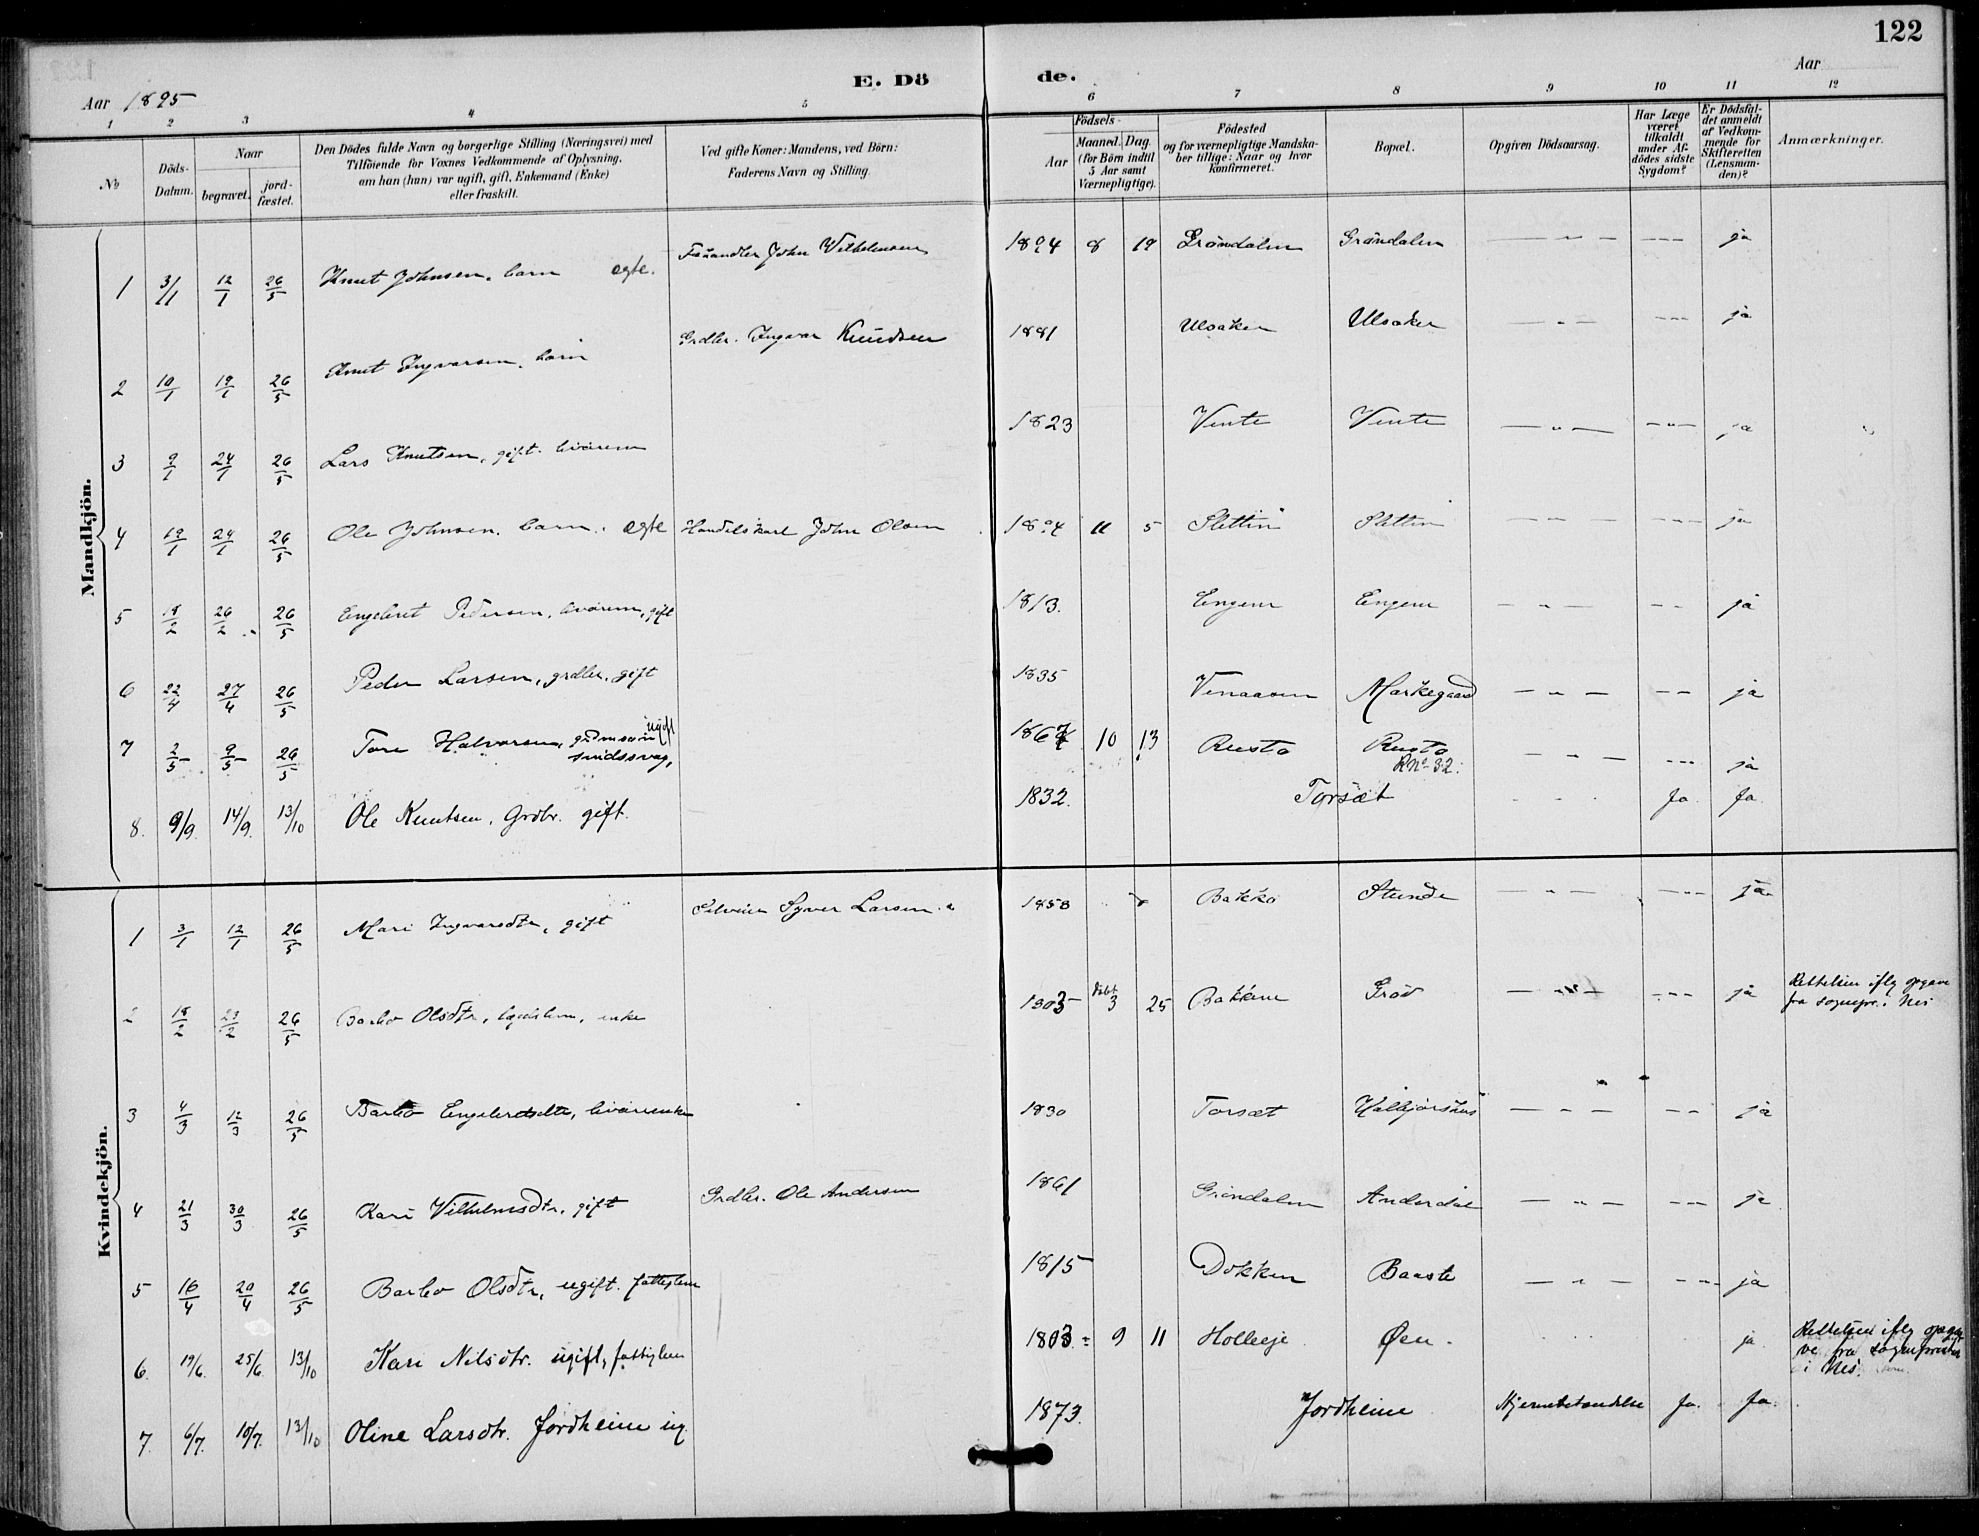 122
E. Dö de.
Aar 1895
Aar
1 2 3 4 5 6 7 8 9 10 11 12
No
Döds-Datum.
Naar
begravet.
jord-fæstet.
Den Dödes fulde Navn og borgerlige Stilling (Næringsvei) med
Tilföiende for Voxnes Vedkommende af Oplysning,
om han (hun) var ugift, gift, Enkemand (Enke)
eller fraskilt.
Ved gifte Koner: Mandens, ved Börn:
Faderens Navn og Stilling.
Födsels-
Aar
Maaned. Dag.
(for Börn indtil
5 Aar samt
Værnepligtige).
Födested
og for værnepligtige Mandska-
ber tillige: Naar og hvor
Konfirmeret.
Bopæl.
Opgiven Dödsaarsag.
Har Læge
været
tilkaldt
under Af-
dödes sidste
Sygdom?
Er Dödsfal-
det anmeldt
af Vedkom-
mende for
Skifteretten
(Lensman-
den)?
Anmærkninger.
Mandkjön.
1 3/1 12/1 26/5 Knut Johnsen, barn ægte. John Vilhelmsen 1894 8 19 Gröndalen Gröndalen — " — --- ja
2 10/1 19/1 26/5 Knut Ingvarsen, barn Grdbr. Ingvar Knudsen 1881 Ulsaker Ulsaker — " — --- ja
3 9/1 24/1 26/5 Lars Knutsen, gift. livörem 1823 Vente Vente — " — -"- ja
4 19/1 24/1 26/5 Ole Johnsen, barn, ægte Handelskarl John Olsen 1894 11 5 Slettin Slettin — — — --- ja
5 18/2 26/2 26/5 Engebret Pedersen, livörem, gift 1813. Engene Engene — " — -- ja
6 22/4 27/4 26/5 Peder Larsen, grdbr. gift 1835 Venaasen Markegaard — " — -- ja
7 2/5 9/5 26/5 Tore Halvorsen, grdmsön ugift
sindssvag, 1867 10 13 Rusto Rusto
RNo 32. — " — --- ja
8. 9/9. 14/9. 13/10 Ole Knutsen, Grdbr. gift. 1832. Torsæt - - . Ja. Ja.
Kvindekjön.
1 3/1 12/1 26/5 Mari Ingvarsdtr, gift Selveier Syver Larsen 1858 Bakko Stunde — " — -"- ja
2 18/2 23/2 26/5 Barbo Olsdtr, lægdslem, enke 1803 döbt 3 25 Bakkene Gröv — " — --- ja Rettelsen iflg opgave
fra sognepr. i Nes
3 4/3 12/3 26/5 Barbo Engebretsdtr, livörenke 1830 Torsæt Halbjörshus — " — -- ja
4 21/3 30/3 26/5 Kari Vilhelmsdtr, gift Grdbr. Ole Andersen 1861 Gröndalen Anderdal — " — -- ja
5 16/4 20/4 26/5 Barbo Olsdtr, ugift. fattiglem 1815 Dokken Baaste — " — --- ja
6. 19/6. 25/6. 13/10 Kari Nilsdtr. ugift, fattiglem 1803 9 11 Holleeje Øen. ja. Rettelsen iflg opga
ve fra sognepresten
i Nes.
7. 6/7. 10/7. 13/10 Oline Larsdtr. Jordheim ug. 1873. Jordheim Hjernebetændelse Ja. Ja.